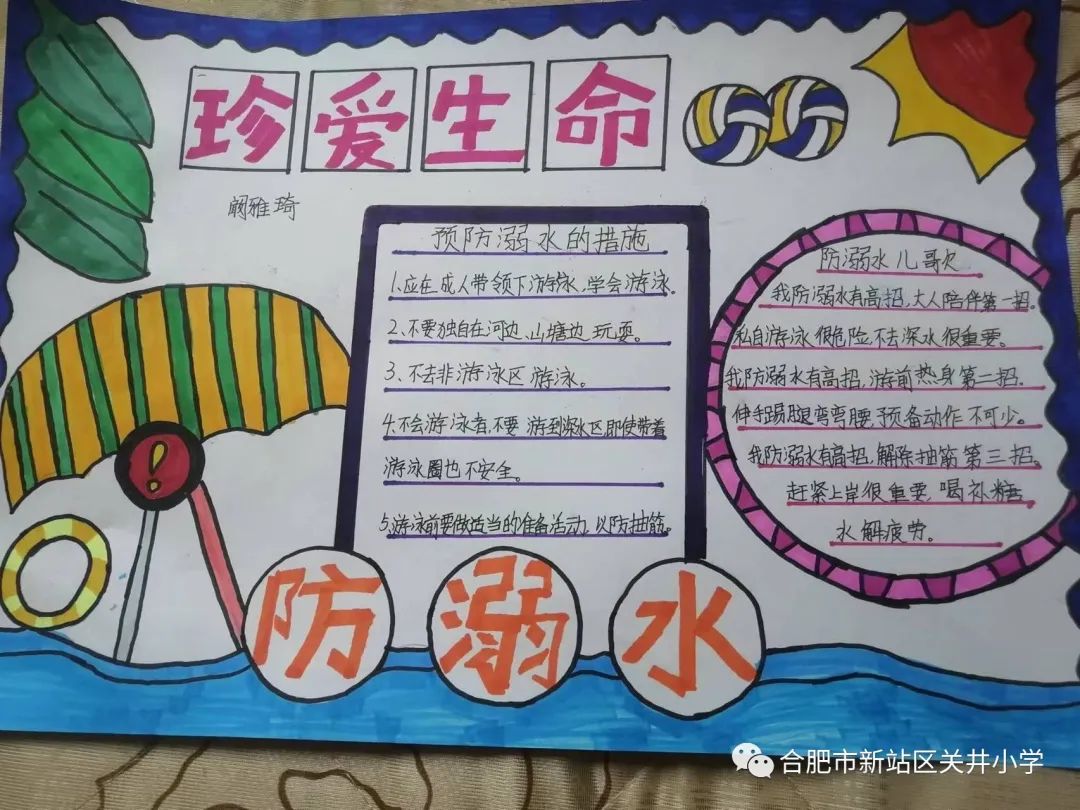 珍爱生命
阚雅琦
预防溺水的措施
1、应在成人带领下游泳,学会游泳。
2、不要独自在河边、山塘边玩耍。
3、不去非游泳区游泳。
4、不会游泳者,不要游到深水区即使带着
游泳圈也不安全。
5、游泳前要做适当的准备活动,以防抽筋。
防溺水儿歌
我防溺水有高招,大人陪伴第一招。
私自游泳很危险,不去深水很重要。
我防溺水有高招,游前热身第二招.
伸手踢腿弯弯腰,预备动作不可少。
我防溺水有高招,解除抽筋第三招。
赶紧上岸很重要,喝补糖
水解疲劳。
防溺水
合肥市新站区关井小学